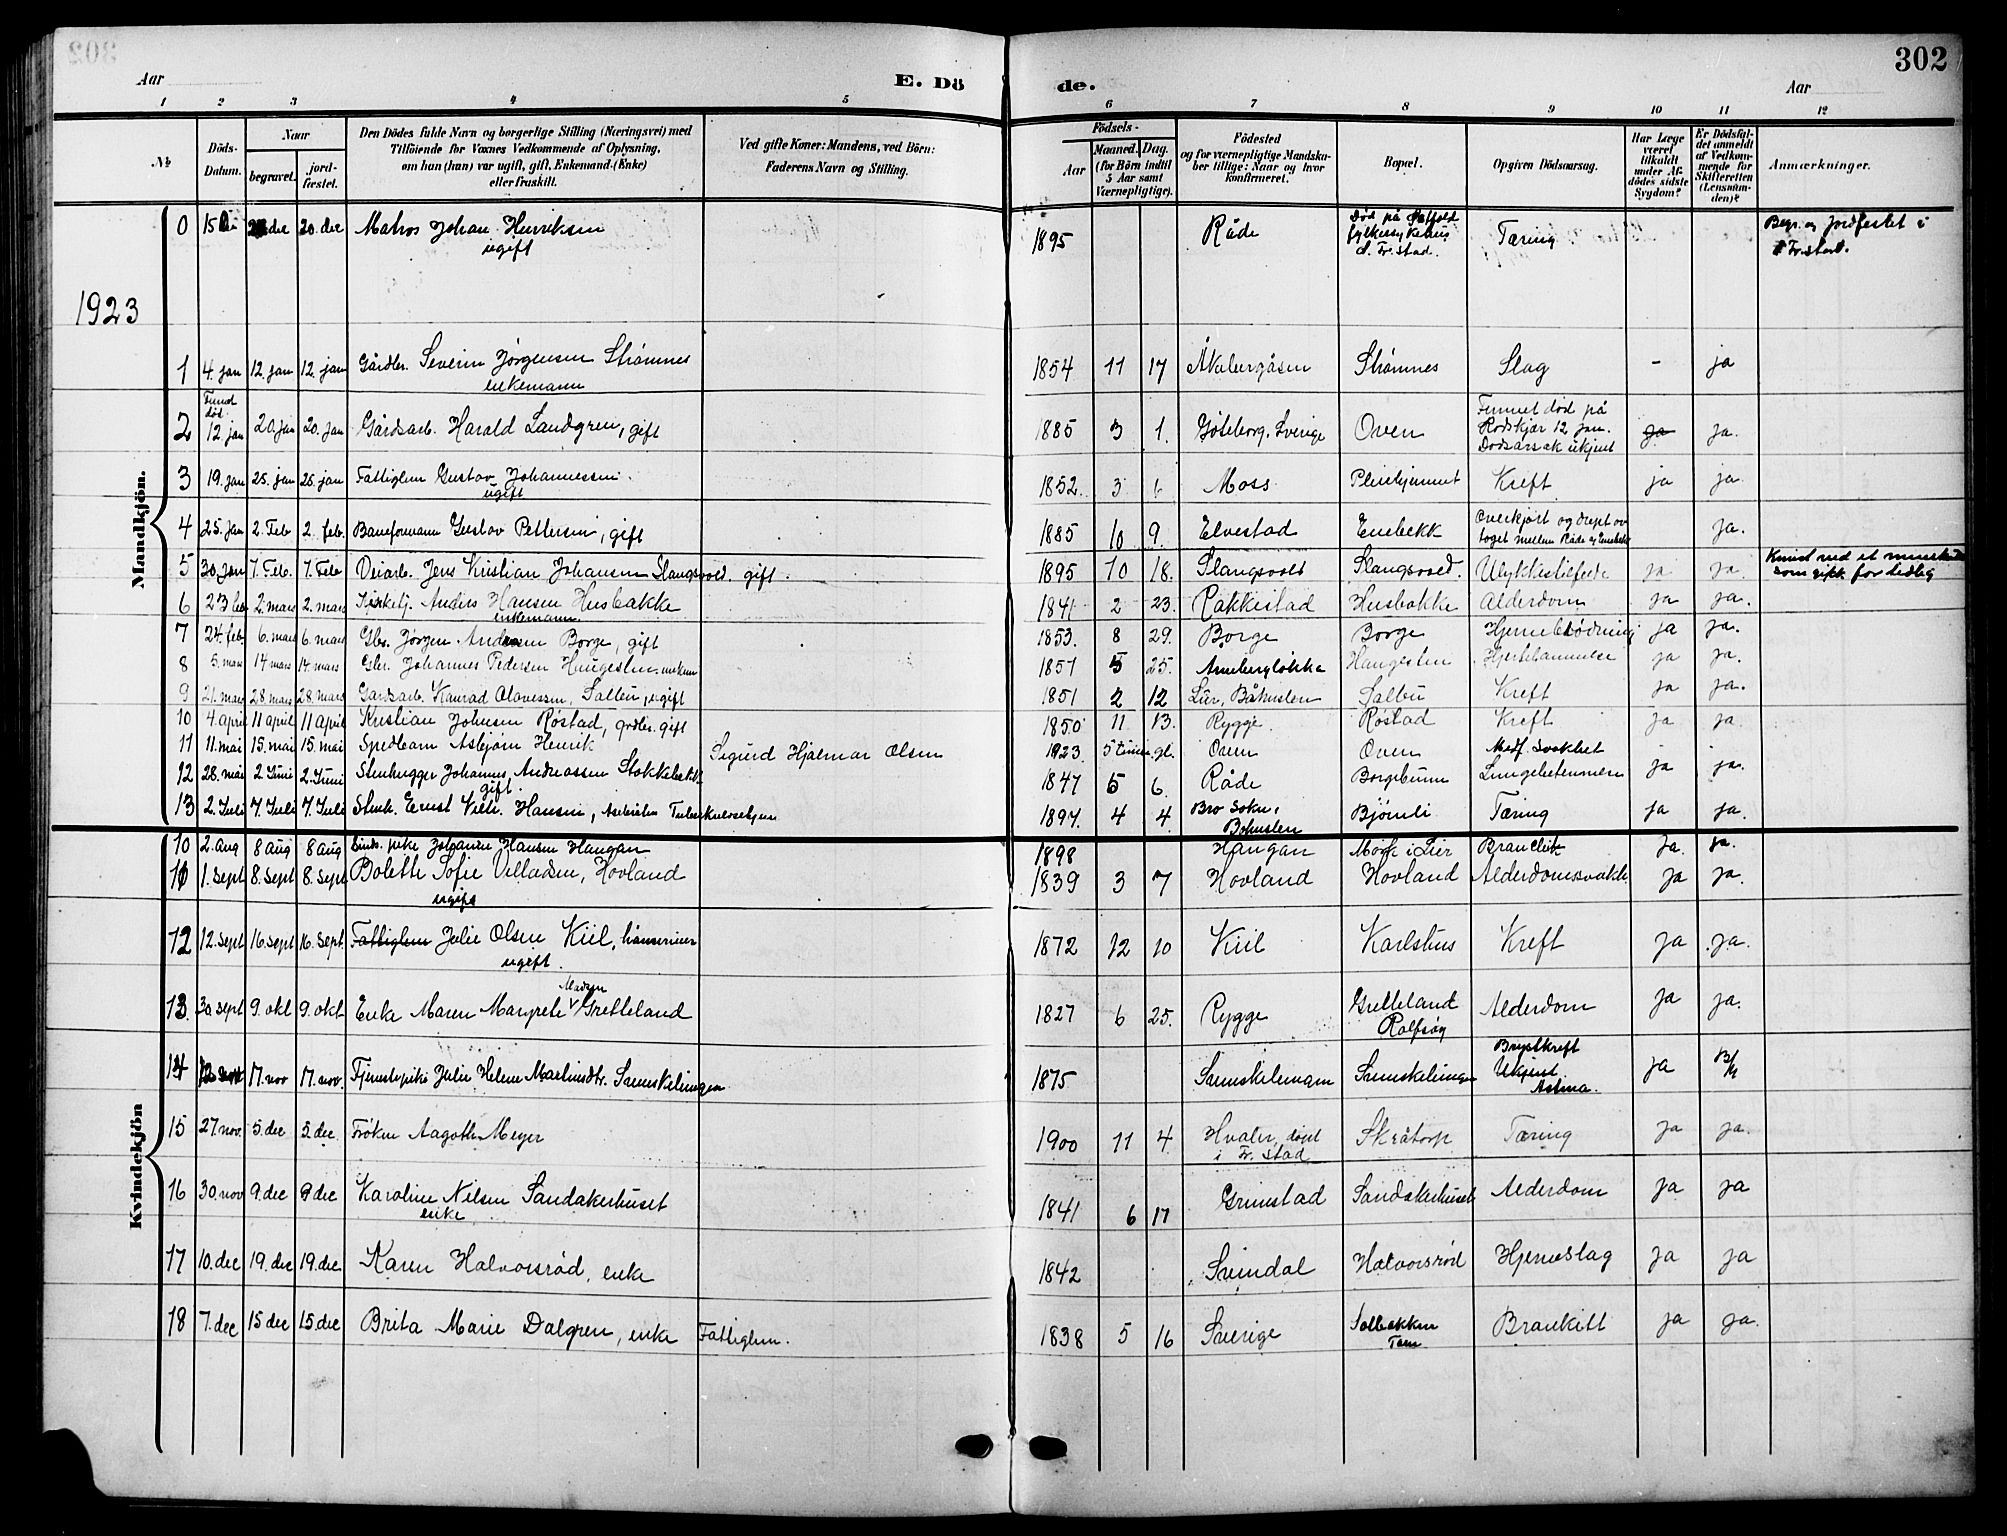 302
Aar
E. Dö
de.
Aar
1 2 3 4 5 6 7 8 9 10 11 12
№
Döds-Datum.
Naar
begravet.
jord-fæstet.
Den Dödes fulde Navn og borgerlige Stilling (Næringsvei) med
Tilföiende for Voxnes Vedkommende af Oplysning,
om han (hun) var ugift, gift, Enkemand-(Enke)
eller fraskilt.
Ved gifte Koner: Mandens, ved Börn:
Faderens Navn og Stilling.
Födsels-
Aar
Maaned.
Dag.
(for Börn indtil
5 Aar samt
Værnepligtige).
Födested
og for værnepligtige Mandska-
ber tillige: Naar og hvor
konfirmeret.
Bopæl.
Opgiven Dödsaarsag.
Har Læge
været
tilkaldt
under Af-
dödes sidste
Sygdom?
Er Dödsfal-
det anmeldt
af Vedkom-
mende for
Skifteretten
(Lensman-
den)?
Anmærkninger.
Mandkjön.
0 20. dec Matros Johan Henriksen 1895 Råde Tæring
ugift
Fr.stad.
Begr. og jordfestet i
Fr.stad.
1923
1 4. jan 12. jan 12. jan Gårdbr. Severin Jørgensen Strømnes 1854 11 17 Strømnes Slag - ja
enkemann
2 12. jan 20. jan 20. jan Gårdsarb. Harald Landgren, gift 1885 3 1. Göteborg, Sverige Oven Funnet død på
12 jan.
Dødsårsak ukjent ja ja.
3 19. jan 25. jan 25. jan Fattiglem Gustav Johannessen. 1852. 3 Moss Pleiehjemmet Kreft ja ja.
ugift
4 25. jan 2. Feb 2. feb. Baneformann Gustav Pettersen, gift 1885 10 9. Elvestad Enebekk Overkjørt og drept av
toget mellem Råde og Enebekk ja.
5 30. jan 7. Feb. 7. Feb Veiarb. Jens Kristian Johansen Slangsvold. gift. 1895 10 18. Slangsvold Slangsvold. Ulykkestilfelde ja ja.
som gikk for tidlig
6 2. mars 2. mars Anders Hansen Husbakke 1841 2 23. Rakkestad Husbakke Alderdom ja ja.
enkemann
7 24. feb. 6. mars 6. mars Gbr. Jørgen Andersen Borge, gift 1853. 8 29. Borge Borge Hjerneblødning ja ja.
8 5. mars 14 mars 14. mars Gbr. Johannes Pedersen Haugesten. 1857 5 25. Arnebergløkka Haugesten Hjertelammelse ja ja.
9 21. mars 28 mars 28 mars Gårdsarb. Konrad Olavessen, Saltbu, ugift 1851 2 12 Lur, Båhuslen Saltbu Kreft ja ja.
10 4. april 11 april 11 april Kristian Johnsen Røstad, grdbr. gift 1850 11 13. Rygge. Røstad Kreft ja ja.
11 11. mai 15. mai 15. mai Spedbarn Asbjørn Henrik Sigurd Hjalmar Olsen 1923 5 timer gl. Oven Oven Medf. svakhet ja ja.
12 28. mai 2 Juni 2. Juni Stenhugger Johannes Andreassen Stokkebekk 1847 5 6. Råde Borgebunn ja ja.
gift.
13 2. Juli 7 Juli 7. Juli Ernst Hansen, 1897. 4 4. Bro Sokn, Bohuslen Bjørnli Tæring ja ja.
Kvindekjön
10 2. aug 8 aug 8 aug pike Johanne Hansen Haugan 1898 Haugan Mørk i Lier ja. ja.
11 1. sept 8. sept 8. sept Bolette Sofie Villadsen, Hovland 1839 3 7 Hovland Hovland Alderdomssvakh. ja ja.
ugift
12 12. sept 16. sept 16. sept. Fattiglem Julie Olsen Kiil, 1872 12 10 Kiil Karlshus Kreft ja ja.
ugift.
Madsen
13. 30. sept 9. okt 9. okt Enke Maren Margrete Gretteland 1827 6 25. Rygge Gretteland Alderdom ja ja.
Rolfsøy
14 17. nov 17. nov. Tjenestepike Julie Helene Martinsdtr. 1875 Brystkreft
Ukjent
Astma. ja
15 27. nov. 5. dec 5. dec. Frøken Aagoth Meyer 1900 11 4. Hvaler, døpt
i Fr. stad Skråtorp Tæring ja ja.
16 30. nov 9. dec 9 dec Karoline Nilsen Sandakerhuset 1841 6 17 Grimstad Sandakerhuset Alderdom ja ja
enke
17 10. dec 19. dec 19. dec Karen Halvorsrød, enke 1842 Svindal Halvorsrød Hjerneslag ja ja
18 7. dec 15 dec 15. dec Brita Marie Dalgren, enke Fattiglem. 1838 5 16 Sverige Solbakken
Tom Bronkitt ja ja.